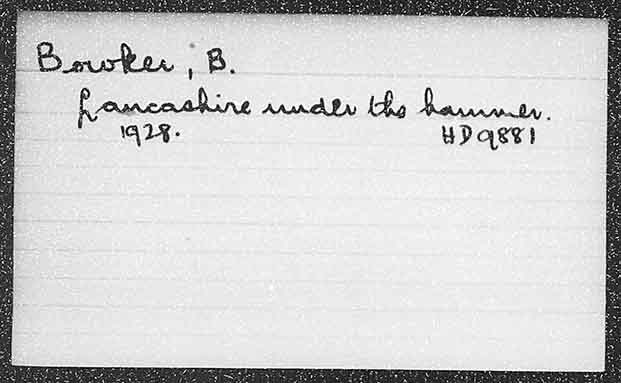 Bowker, B.
Lancashire under the hammer.
1928. HD9881